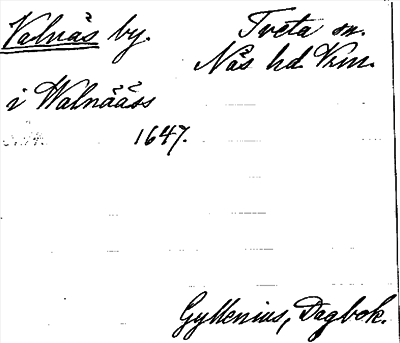 Valnäs by. Tveta sn.
Näs hd. Vrm.
i Walnääss
1647.
Gyllenius, Dagbok.